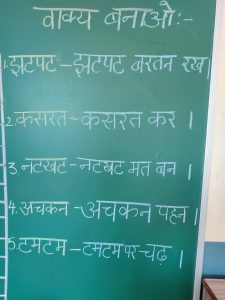 वाक्य बनाओ:-
1. झटपट – झटपट बरतन रख।
2. कसरत – कसरत कर ।
3. नटखट – नटखट मत बन ।
4. अचकन – अचकन पहन ।
5. टमटम – टमटम पर चढ़ ।